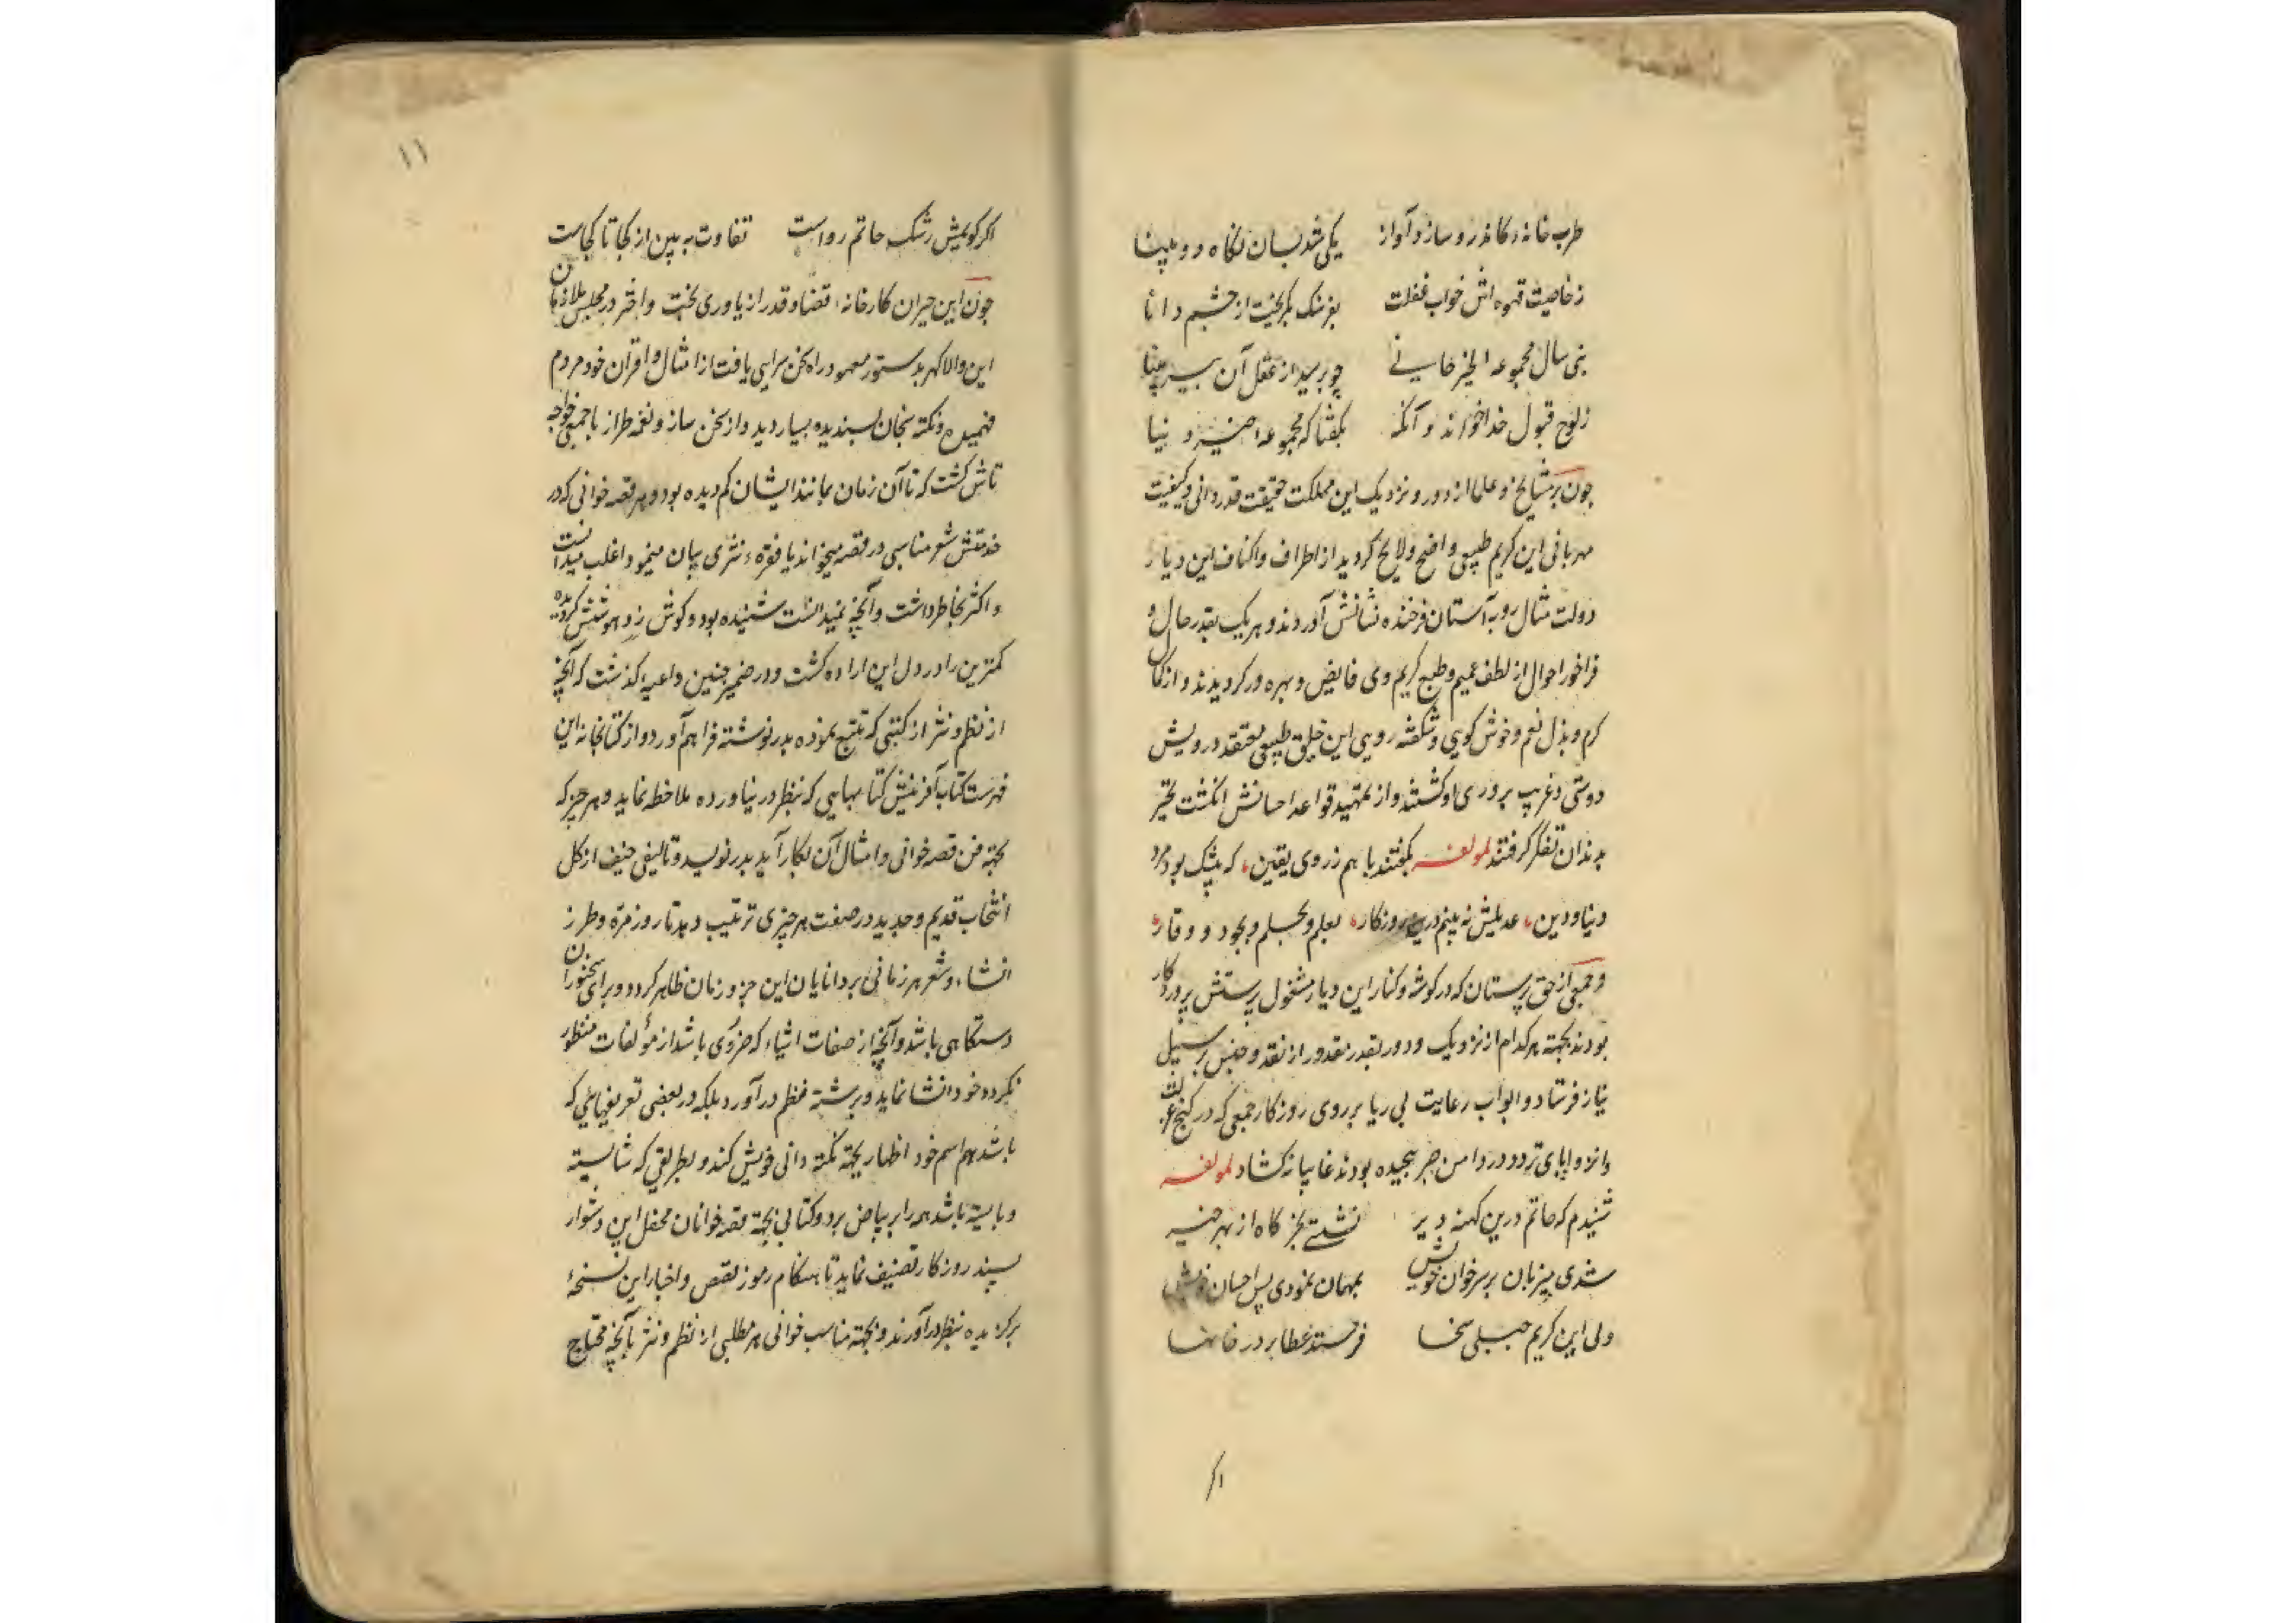 طرب خانه کاندرو ساز و آواز یکی شد بسان نگاه دو بینا
ز خاصیت قهوه اش خواب غفلت بفرسنگ بگریخت از چشم دانا
بنی سال مجموعه الخیر خانی چو پرسید از عقل آن پیر
ز لوح قبول خدا خواند و آنگه بگفتا که مجموعه خیر دنیا
چون بر مشایخ و علما از دور و نزدیک این مملکت حقیقت قدردانی و کیفیت
مهربانی این کریم طبیعی واضح و لایح کردید از اطراف و اکناف این دیار
دولت مثال رو به آستان فرخنده نشانش آوردند و هر یک بقدر حال و
فراخور احوال از لطف عمیم و طبع کریم وی فایض و بهره ور کردیدند و از کمال
کرم و بذل نعم و خوش کویی و شکفته رویی این خلیق طبیعی معتقد درویش
دوستی و غریب پروری او کشتند و از تمهید قواعد احسانش انکشت تحیر
بدندان تفکر کرفتند لمولفه بگفتند با هم ز روی یقین که بیشک بود مرد
دنیا و دین عدیلش نه بینم درین روزکار بعلم و بحلم و بجود و وقار
و جمعی از حق پرستان که در کوشه و کنار این دیار مشغول پرستش پروردکار
بودند بجهته هر کدام از نزدیک و دور بقدر مقدور از نقد و جنس بر سبیل
نیاز فرستاد و ابواب رعایت بی ریا بر روی روزکار جمعی که در کنج عزلت
و انزوا پای تردد در دامن صبر پیچیده بودند غایبانه کشاد لمولفه
شنیدم که حاتم درین کهنه دیر نشستی بخرکاه از بهر خیر
شدی میزبان بر سر خوان خویش بمهمان نمودی پس احسان خویش
ولی این کریم جبلی سخا فرستد عطا بر در خانها
اکر
۱۱
اکر کویمش رشک حاتم رواست تفاوت به بین از کجا تا کجاست
چون این حیران کارخانه قضا و قدر از یاوری بخت و اختر در مجلس ملازمان
این والا کهر بدستور معهود راه سخن سرایی یافت از امثال و اقران خود مردم
فهمیده و نکته سنجان پسندیده بسیار دید و از سخن ساز و نغمه طراز با جمعی خواجه
تاش کشت که تا آن زمان مانند ایشان کم دیده بود و هر قصه خوانی که در
خدمتش شعر مناسبی در قصه میخواند یا فقره نثری بیان مینمود اغلب میدانست
و اکثر بخاطر داشت و آنچه نمیدانست شنیده بود و کوش زد هوشش کردیده
کمترین را در دل این اراده کشت و در ضمیر چنین داعیه کذشت که آنچه
از نظم و نثر از کتبی که تتبع نموده بدر نوشته فراهم آورد و از کتابخانه این
فهرست کتاب آفرینش کتابهایی که بنظر در نیاورده ملاحظه نماید و هر چیز که
بجهته فن قصه خوانی و امثال آن بکار آید بدر نویسد و تالیفی حنیف از کل
انتخاب قدیم و جدید در صفت هر چیزی ترتیب دهد تا روزمره و طرز
انشاء و شعر هر زمانی بر دانایان این جزو زمان ظاهر کردد و برای سخنوران
دستکاهی باشد و آنچه از صفات اشیاء که ضروری باشد از مؤلفات منظور
نکرده خود انشا نماید و برشته نظم در آورد بلکه در بعضی تعریفهائی که
باشد هم اسم خود اظهار بجهته نکته دانی خویش کند و بطریقی که شایسته
و بایسته باشد همه را بر بیاض برد و کتابی بجهته قصه خوانان محفل این دشوار
پسند روزکار تصنیف نماید تا هنکام رموز قصص و اخبار این نسخه
برکزیده بنظر در آورند و بجهته مناسب خوانی هر مطلبی از نظم و نثر بآنچه محتاج